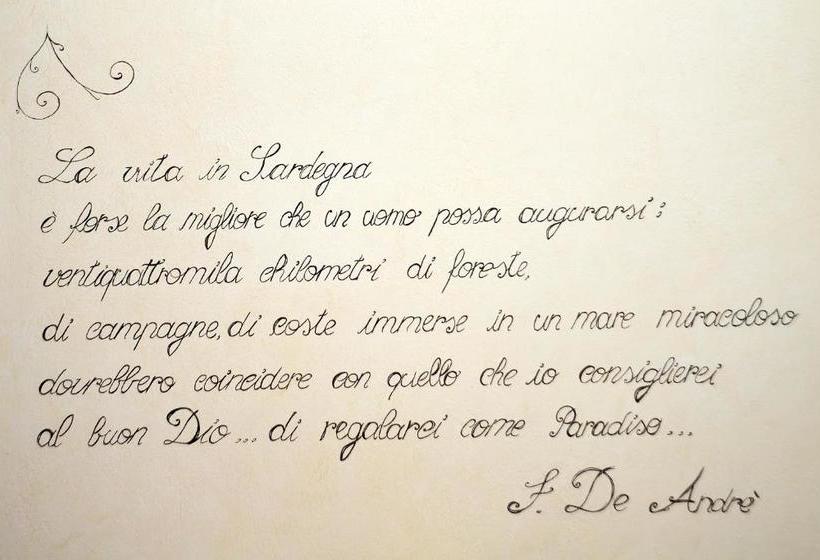 La vita in Sardegna
è forse la migliore che un uomo possa augurarsi:
ventiquattromila chilometri di foreste,
di campagne, di coste immerse in un mare miracoloso
dovrebbero coincidere con quello che io consiglierei
al buon Dio... di regalarci come Paradiso...
F. De Andrè